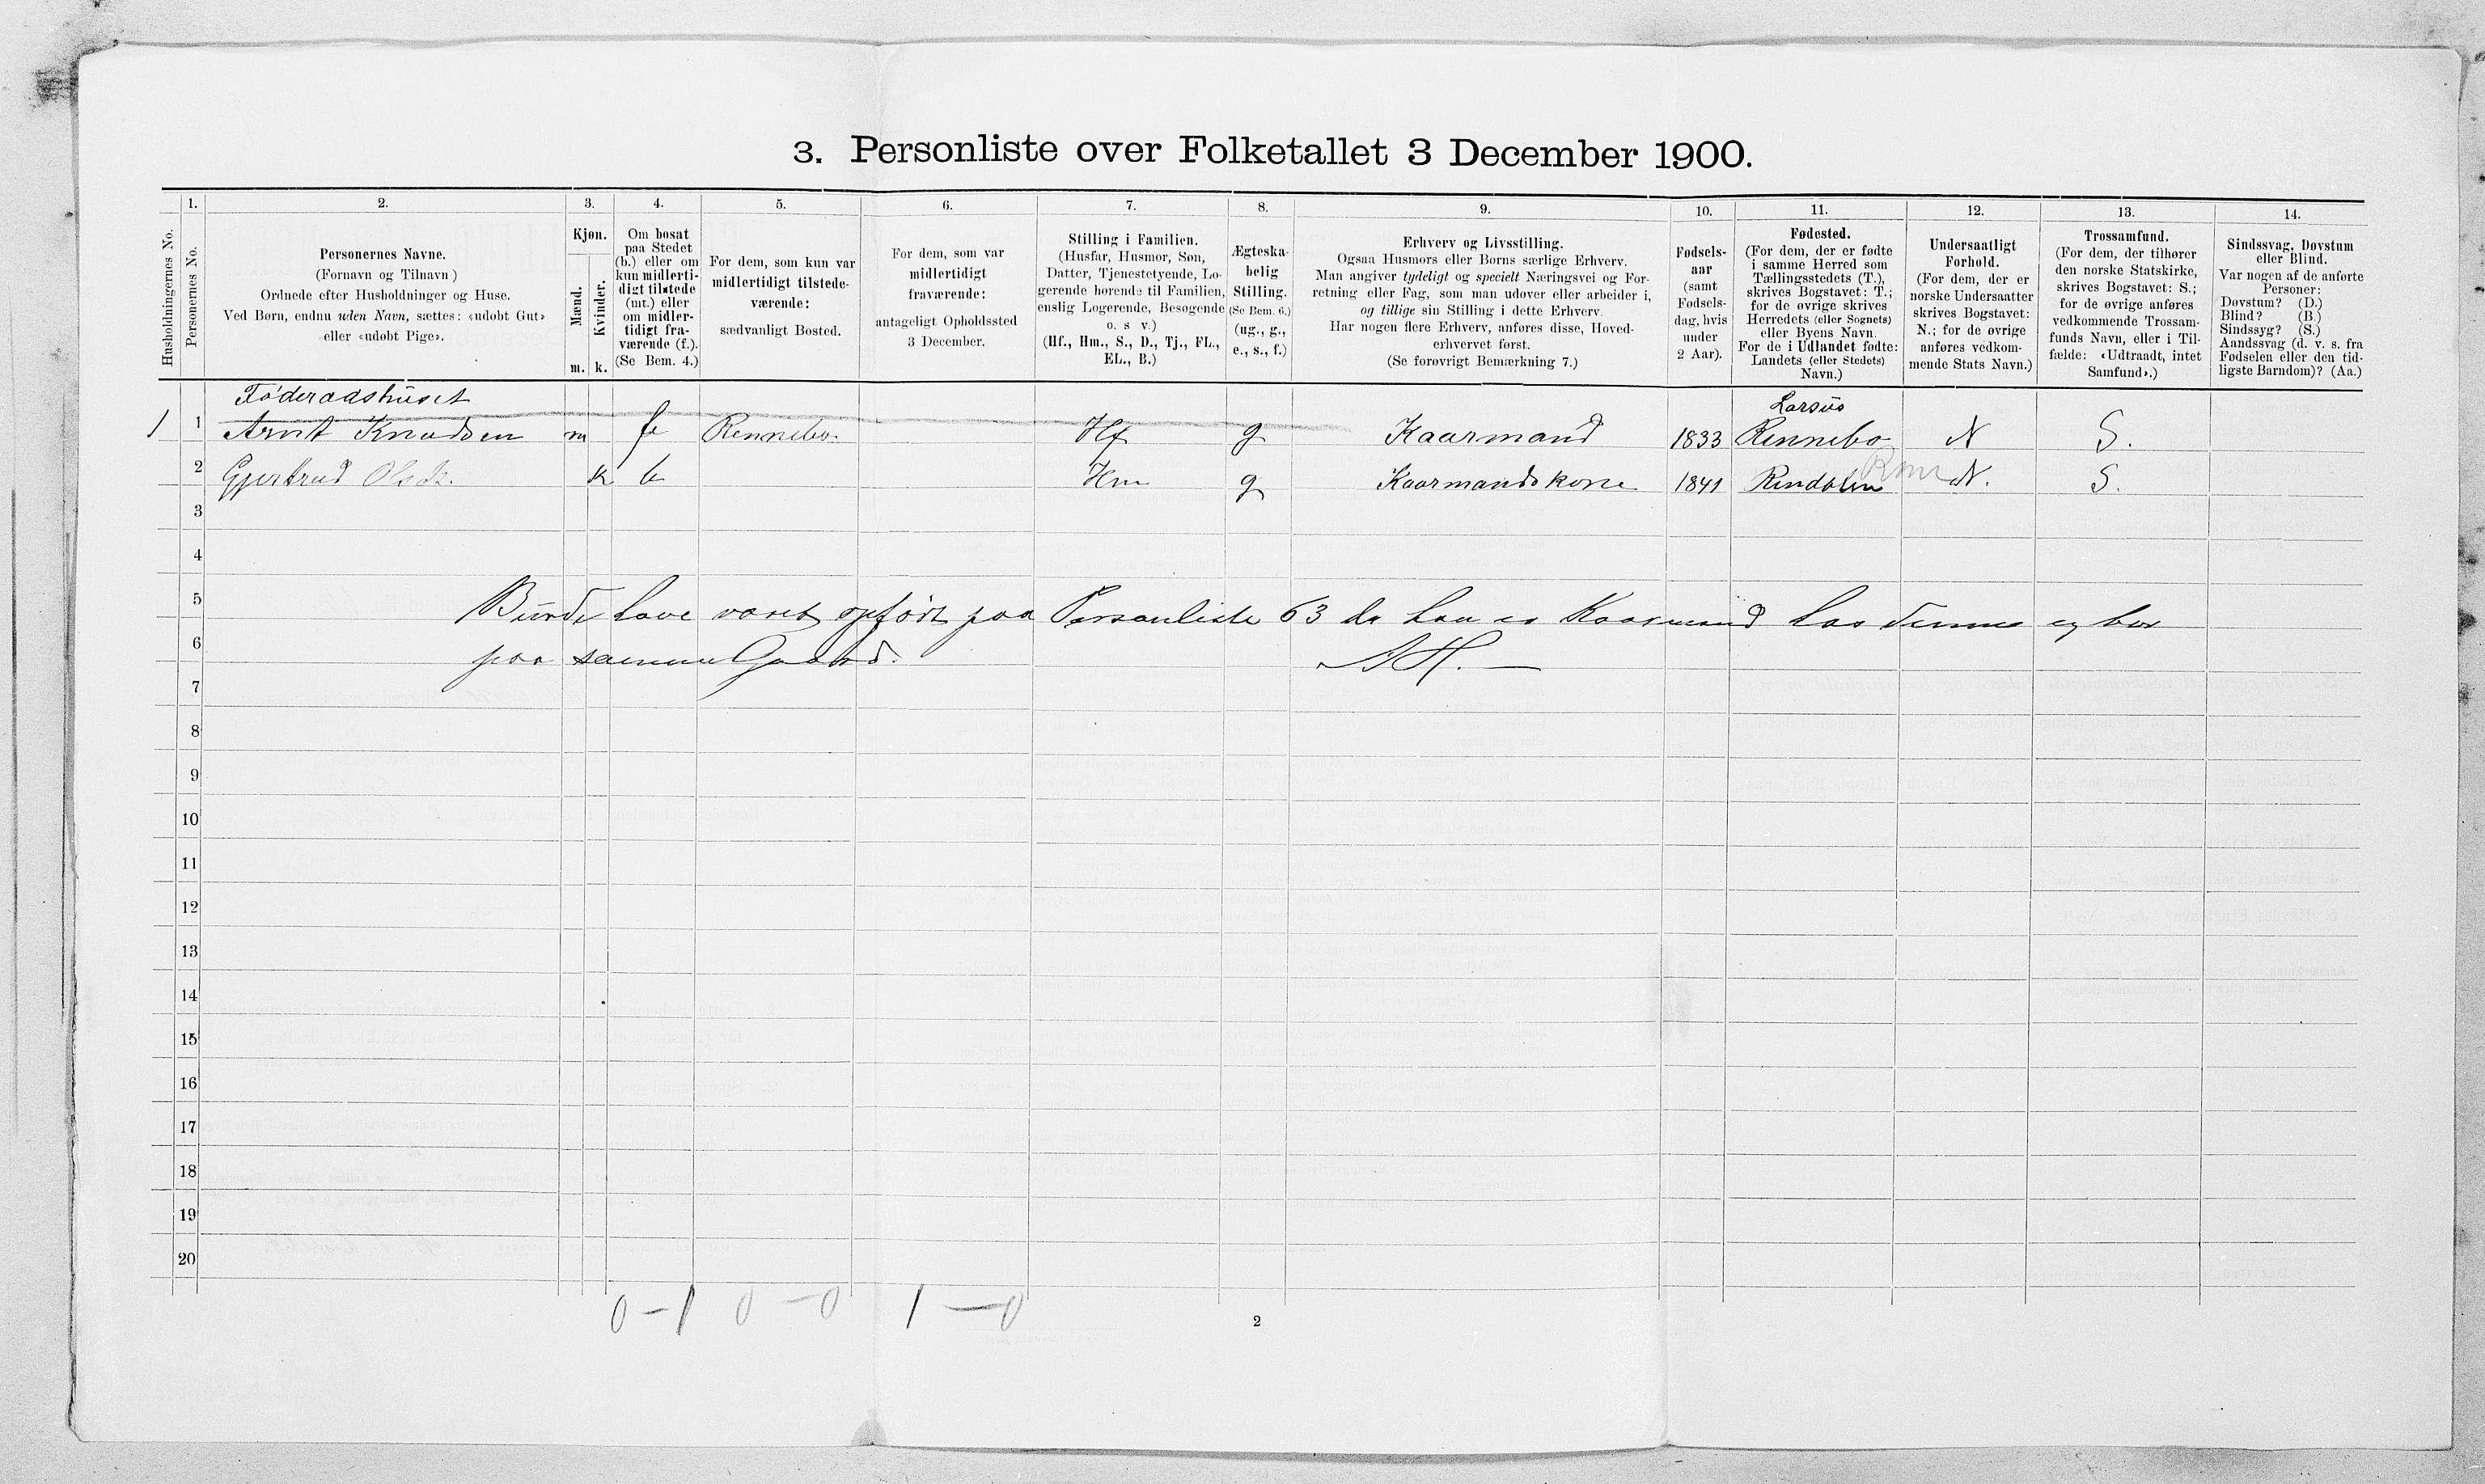 3. Personliste over Folketallet 3 December 1900.
1. 2. 3. 4. 5. 6. 7. 8. 9. 10. 11. 12. 13. 14.
Husholdningernes No.
Personernes No.
Personernes Navne.
(Fornavn og Tilnavn)
Ordnede efter Husholdninger og Huse.
Ved Børn, endnu uden Navn, sættes: «udøbt Gut»
eller «udøbt Pige».
Kjøn.
Mænd.
Kvinder.
m. k.
Om bosat
paa Stedet
(b.) eller om
kun midlerti-
digt tilstede
(mt.) eller
om midler-
tidigt fra-
værende (f.).
(Se Bem. 4.)
For dem, som kun var
midlertidigt tilstede-
værende:
sædvanligt Bosted.
For dem, som var
midlertidigt
fraværende:
antageligt Opholdssted
3 December.
Stilling i Familien.
(Husfar, Husmor, Søn,
Datter, Tjenestetyende, Lo-
gerende hørende til Familien,
enslig Logerende, Besøgende
o. s v.)
(Hf., Hm., S., D., Tj., FL.,
EL., B.)
Ægteska-
belig
Stilling.
(Se Bem. 6.)
(ug., g.,
e., s., f.)
Erhverv og Livsstilling.
Ogsaa Husmors eller Børns særlige Erhverv.
Man angiver tydeligt og specielt Næringsvei og For-
retning eller Fag, som man udøver eller arbeider i,
og tillige sin Stilling i dette Erhverv.
Har nogen flere Erhverv, anføres disse, Hoved-
erhvervet først.
(Se forøvrigt Bemærkning 7.)
Fødsels-
aar
(samt
Fødsels-
dag, hvis
under
2 Aar).
Fødested.
(For dem, der er fødte
i samme Herred som
Tællingsstedets (T.),
skrives Bogstavet: T.;
for de øvrige skrives
Herredets (eller Sognets)
eller Byens Navn
For de i Udlandet fødte:
Landets (eller Stedets)
Navn.)
Undersaatligt
Forhold.
(For dem, der er
norske Undersaatter
skrives Bogstavet:
N.; for de øvrige
anføres vedkom-
mende Stats Navn.)
Trossamfund.
(For dem, der tilhører
den norske Statskirke,
skrives Bogstavet: S.;
for de øvrige anføres
vedkommende Trossam-
funds Navn, eller i Til-
fælde: «Udtraadt, intet
Samfund».)
Sindssvag, Døvstum
eller Blind.
Var nogen af de anførte
Personer:
Døvstum? (D.)
Blind? (B.)
Sindssyg? (S.)
Aandssvag (d. v. s. fra
Fødselen eller den tid-
ligste Barndom)? (Aa.)
Føderaadshuset
1 1 Arnt Knudsen m Rennebo. Hf g Kaarmand 1833 Rennebo N S.
2 Gjertrud Olsdt. k b Hm g Kaarmandskone 1841 Rindalen N. S.
3
4
5 Burde have været opført paa Personliste 63 da han er Kaarmand hos denne og bor
6 paa samme Gaard. AH.
7
8
9
10
11
12
13
14
15
16
17
18
19
20
0–1 0–0 1–0
2